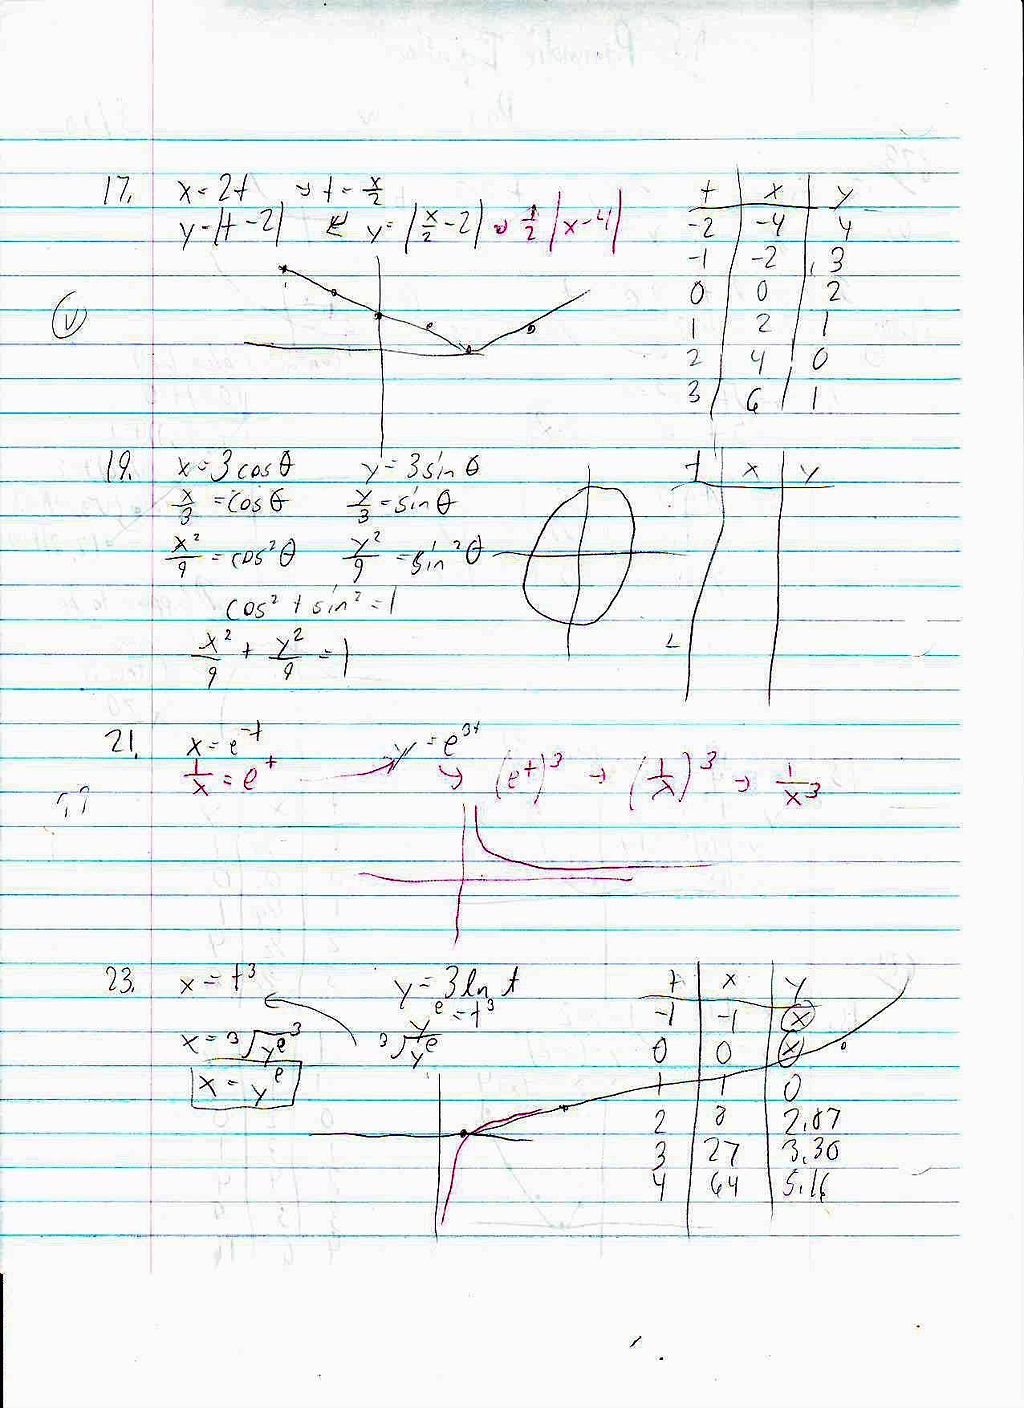 17. x = 2t → t = x/2
y = |t - 2| y = |x/2 - 2| 1/2 |x - 4|
t x y
-2 -4 4
-1 -2 3
0 0 2
1 2 1
2 4 0
3 6 1
19. x = 3 cos θ y = 3 sin θ
x/3 = cos θ y/3 = sin θ
x²/9 = cos² θ y²/9 = sin² θ
cos² + sin² = 1
x²/9 + y²/9 = 1
t x y
21. x = e^-t y = e^3t
1/x = e^t → (e^t)^3 → (1/x)^3 → 1/x^3
23. x = t³ y = 3 ln t
y^e = t³
x = ³√y^e ³ ³√y^e
x = y^e
t x y
-1 -1 x
0 0 x
1 1 0
2 8 2.07
3 27 3.30
4 64 5.16